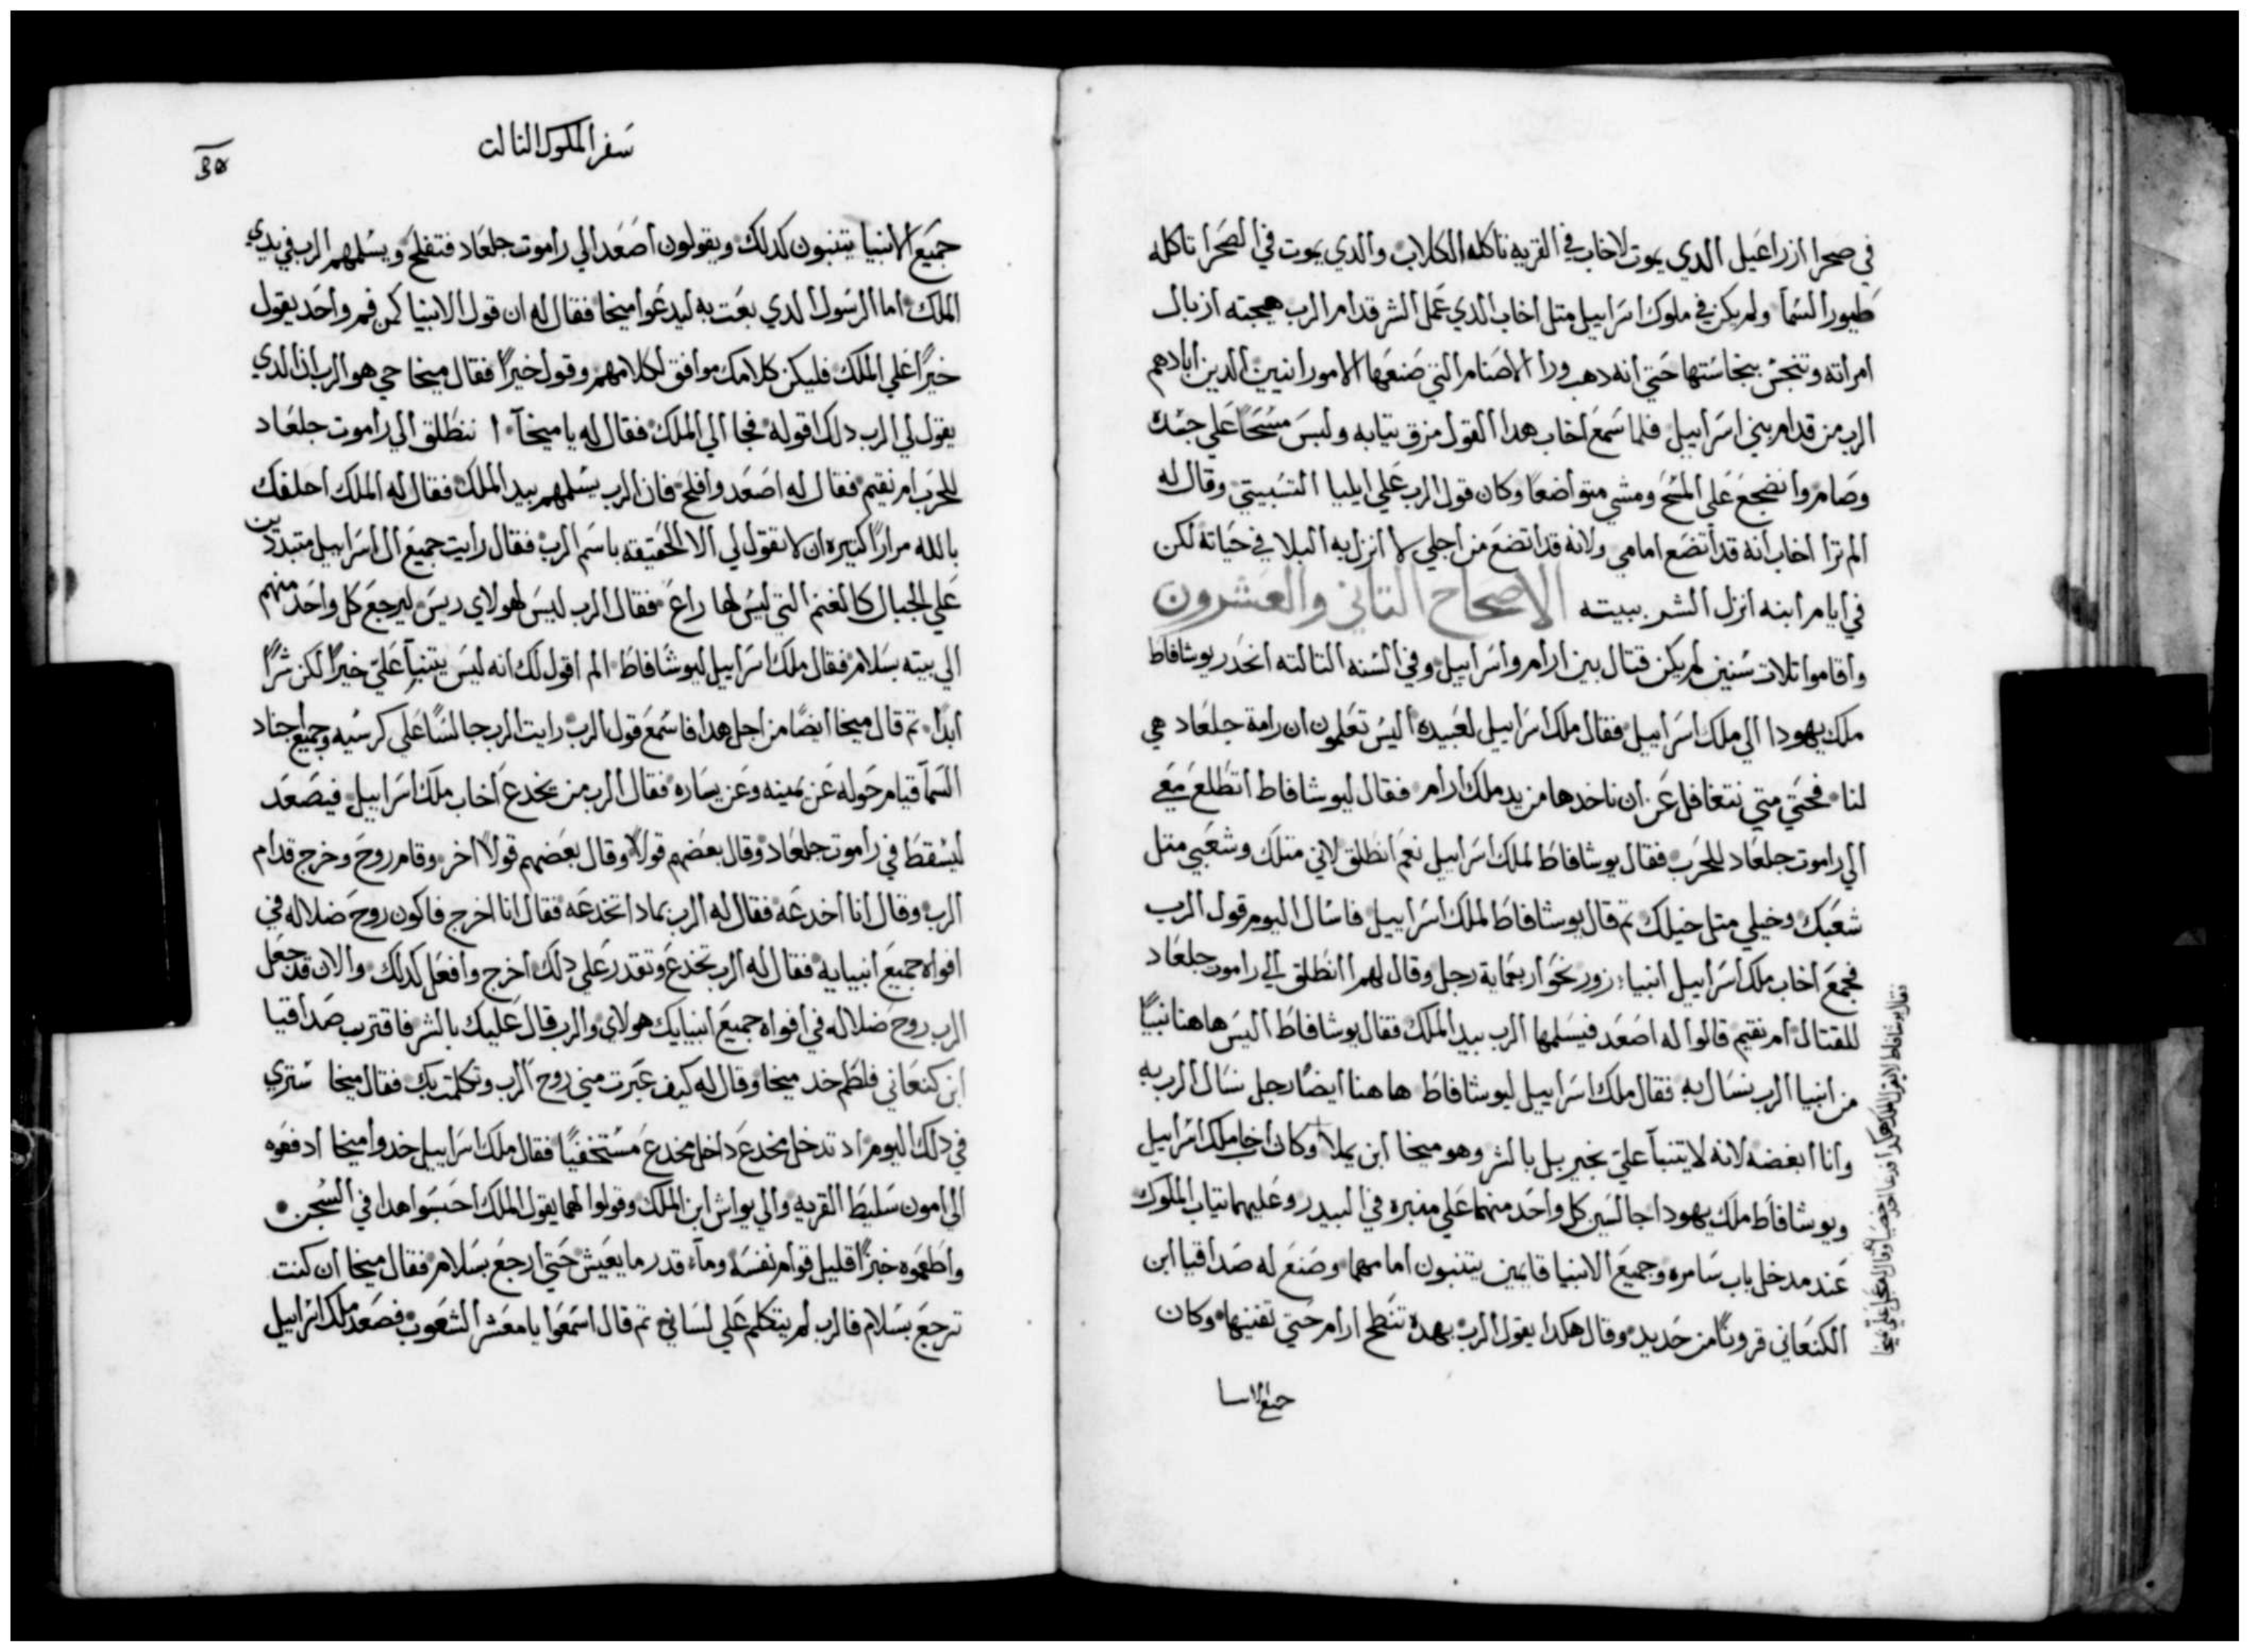 في صحرا ازراعيل الدي يموت لاخاب في القريه تاكله الكلاب والدي يموت في الصحرا تاكله
طيور السما ولم يكن في ملوك اسراييل متل اخاب الدي عمل الشر قدام الرب هيجته ازبال
امراته وتنجس بنجاستها حتي انه دهب ورا الاصنام التي صنعها الامورانيين الدين ابادهم
الرب من قدام بني اسراييل فلما سمع اخاب هدا القول مزق تيابه ولبس مسحًا علي جسده
وصام وانضجع علي المسح ومشي متواضعًا وكان قول الرب علي ايليا التسبيتي وقال له
الم ترا اخاب انه قد اتضع امامي ولانه قد اتضع من اجلي لا انزل به البلا في حياته لكن
في ايام ابنه انزل الشر ببيته الاصحاح التاني والعشرون
واقاموا تلات سنين لم يكن قتال بين ارام واسراييل وفي السنه التالته انحدر يوشافاط
ملك يهودا الي ملك اسراييل فقال ملك اسراييل لعبيده اليس تعلمون ان رامة جلعاد هي
لنا فحتي متي نتغافل عن ان ناخدها من يد ملك ارام فقال ليوشافاط اتطلع معي
الي راموت جلعاد للحرب فقال يوشافاط لملك اسراييل نعم انطلق لاني متلك وشعبي متل
شعبك وخيلي متل خيلك تم قال يوشافاط لملك اسراييل فاسال اليوم قول الرب
فجمع اخاب ملك اسراييل انبيا زور نحو اربعماية رجل وقال لهم انطلق الي راموت جلعاد
للقتال ام نقيم قالوا له اصعد فيسلمها الرب بيد الملك فقال يوشافاط اليس هاهنا نبيًا
من انبيا الرب نسال به فقال ملك اسراييل ليوشافاط هاهنا ايضًا رجل نسال الرب به
وانا ابغضه لانه لا يتنبا علي بخير بل بالشر وهو ميخا ابن يملا وكان اخاب ملك اسراييل
ويوشافاط ملك يهودا جالسين كل واحد منهما علي منبره في البيدر وعليهما تياب الملوك
عند مدخل باب سامره وجميع الانبيا قايمين يتنبون امامهما وصنع له صداقيا ابن
الكنعاني قرونًا من حديد وقال هكدا يقول الرب بهده تنطح ارام حتي تفنيها وكان
جميع الانبيا
فقال يوشافاط لا يقول الملك هكدا فدعا اخاب خصيًا وقال له عجل علي ميخا
سفر الملوك التالت
جميع الانبيا يتنبون كدلك ويقولون اصعد الي راموت جلعاد فتفلح ويسلمهم الرب في يدي
الملك اما الرسول الدي بعت به ليدعوا ميخا فقال له ان قول الانبيا كمن فم واحد يقول
خيرًا علي الملك فليكن كلامك موافق لكلامهم وقول خيرًا فقال ميخا حي هو الرب ان الدي
يقول لي الرب دلك اقوله فجا الي الملك فقال له يا ميخا ا ننطلق الي راموت جلعاد
للحرب ام نقيم فقال له اصعد وافلح فان الرب يسلمهم بيد الملك فقال له الملك احلفك
بالله مرارًا كتيره ان لا تقول لي الا الحقيقه باسم الرب فقال رايت جميع ال اسراييل متبددين
علي الجبال كالغنم التي ليس لها راع فقال الرب ليس لهولاي ريس ليرجع كل واحد منهم
الي بيته بسلام فقال ملك اسراييل ليوشافاط الم اقول لك انه ليس يتنبا علي خيرًا لكن شرًا
ابدًا تم قال ميخا ايضًا من اجل هدا فاسمع قول الرب رايت الرب جالسًا علي كرسيه وجميع اجناد
السما قيام حوله عن يمينه وعن يساره فقال الرب من يخدع اخاب ملك اسراييل فيصعد
ليسقط في راموت جلعاد وقال بعضهم قولًا وقال بعضهم قولًا اخر وقام روح وخرج قدام
الرب وقال انا اخدعه فقال له الرب بمادا تخدعه فقال انا اخرج فاكون روح ضلاله في
افواه جميع انبيايه فقال له الرب تخدع وتقدر علي دلك اخرج وافعل كدلك والان قد جعل
الرب روح ضلاله في افواه جميع انبيايك هولاي والرب قال عليك بالشر فاقترب صداقيا
ابن كنعاني فلطم خد ميخا وقال له كيف عبرت مني روح الرب وتكلمت بك فقال ميخا ستري
في دلك اليوم اد تدخل مخدع داخل مخدع مستخفيًا فقال ملك اسراييل خدوا ميخا ادفعوه
الي امون سليط القريه والي يواش ابن الملك وقولوا لهما يقول الملك احبسوا هدا في السجن
واطعموه خبزًا قليل قوام نفسه وما قدر ما يعيش حتي ارجع بسلام فقال ميخا ان كنت
ترجع بسلام فالرب لم يتكلم علي لساني تم قال اسمعوا يا معشر الشعوب فصعد ملك اسراييل